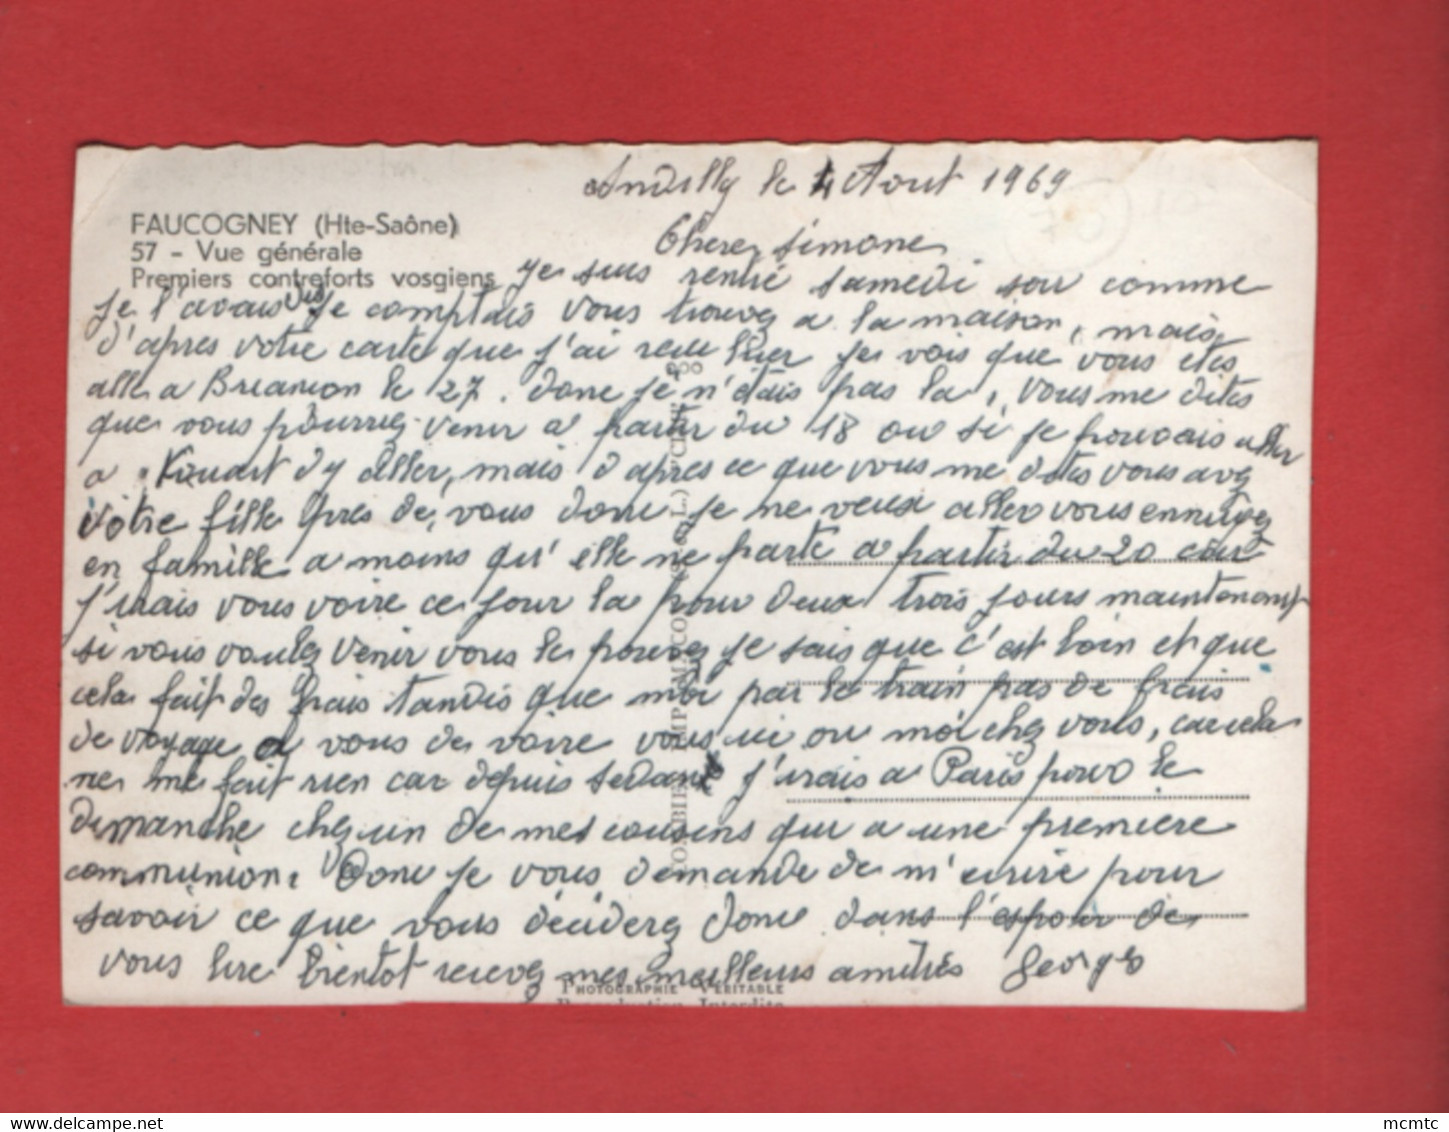 Andilly le 4 Aout 1969
FAUCOGNEY (Hte-Saône)
57 - Vue générale
Premiers contreforts vosgiens
Chere Simone
je suis rentré samedi soir comme
je l'avais dis je comptais vous trouvez a la maison, mais
d'apres votre carte que j'ai reçu hier je vois que vous etes
allé a Briançon le 27. donc je n'étais pas la, vous me dites
que vous pourrez venir a partir du 18 ou si je pouvais aller
a d'y aller, mais d'apres ce que vous me dites vous avez
votre fille pres de vous donc je ne veux aller vous ennuyez
en famille a moins qu'elle ne parte a partir du 20 car
j'irais vous voire ce jour la pour deux trois jours maintenant
si vous voulez venir vous le pouvez je sais que c'est loin et que
cela fait des frais tandis que moi par le train pas de frais
de voyage a vous de voire vous ici ou moi chez vous, car cela
ne me fait rien car depuis Sedan j'irais a Paris pour le
dimanche chez un de mes cousins qui a une premiere
communion. Donc je vous demande de m'ecrire pour
savoir ce que vous déciderez donc dans l'espoir de
vous lire bientot recevez mes meilleurs amitiés Georges
PHOTOGRAPHIE VÉRITABLE
Reproduction Interdite
mcmtc